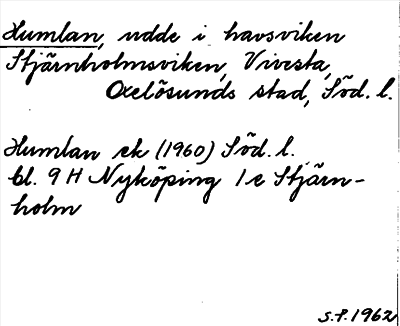 Humlan, udde i havsviken
Stjärnholmsviken, Vivesta,
Oxelösunds stad, Söd. l.
Humlan ek (1960) Söd. l.
bl. 9 H Nyköping 1 e Stjärn-
holm
S.P. 1962